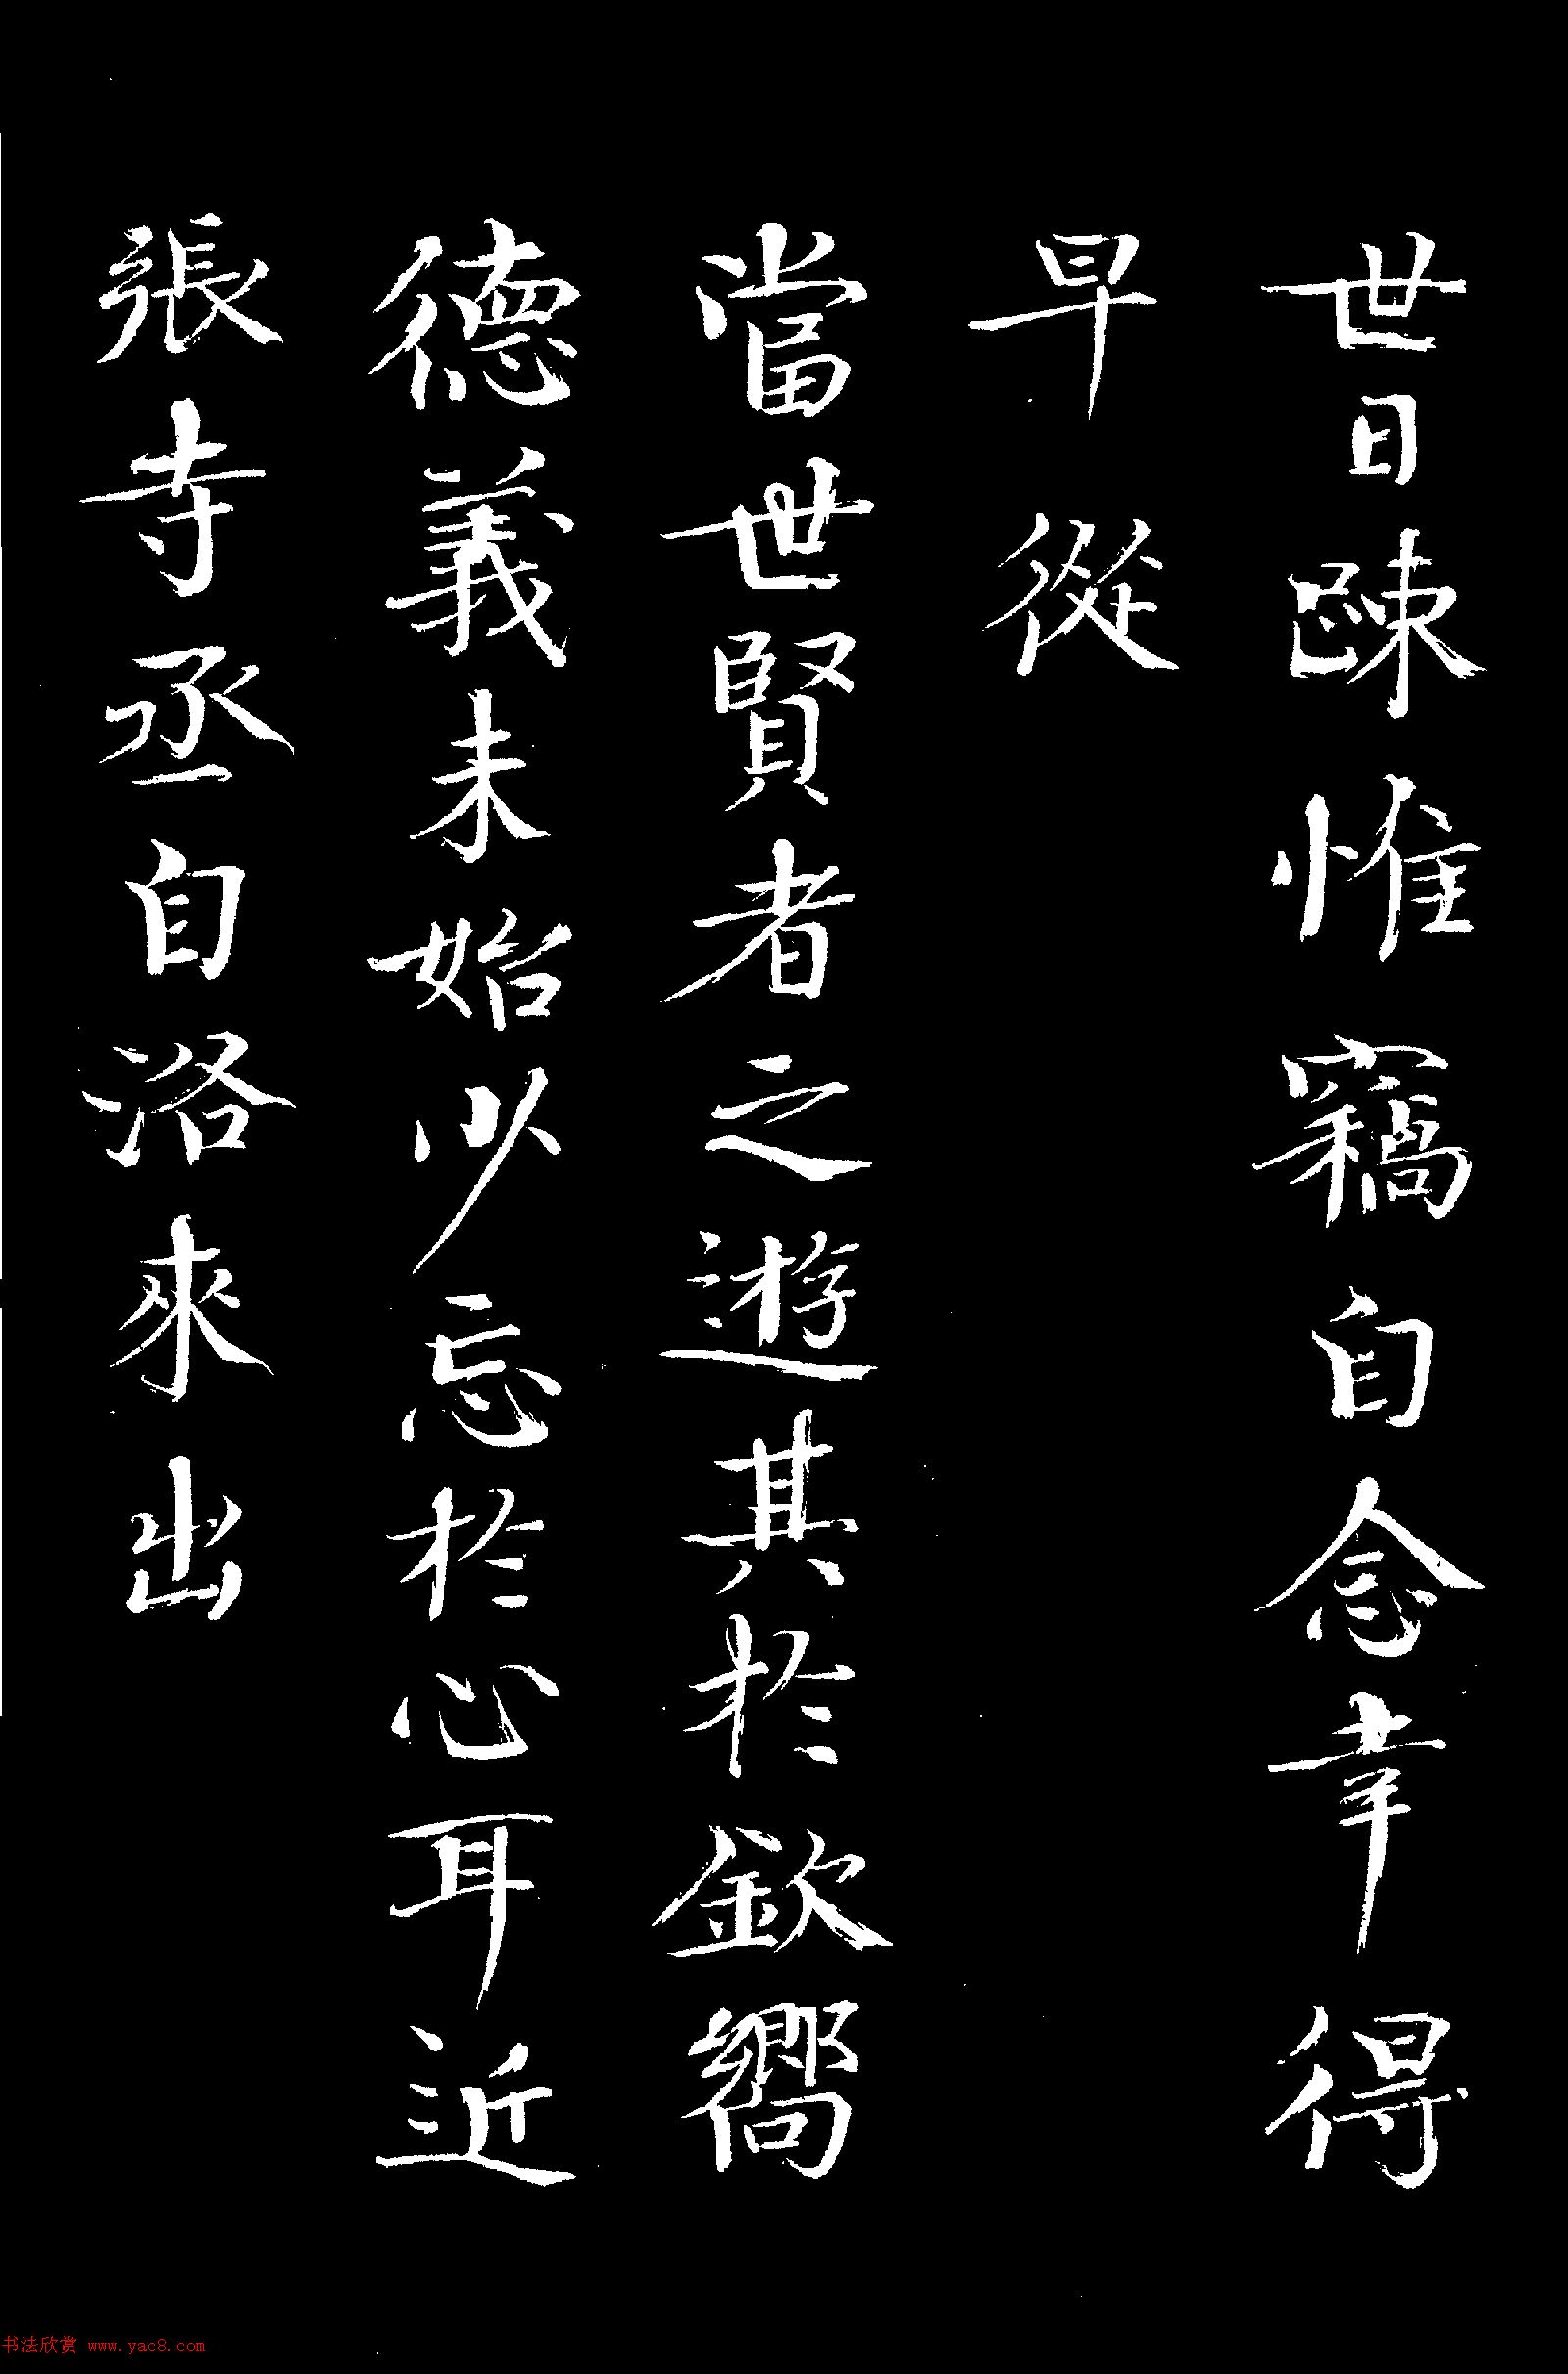 世日踈惟竊自念幸得
早從
當世賢者之遊其於欽嚮
德義未始少忘於心耳近
張寺丞自洛來出
书法欣赏 www.yac8.com